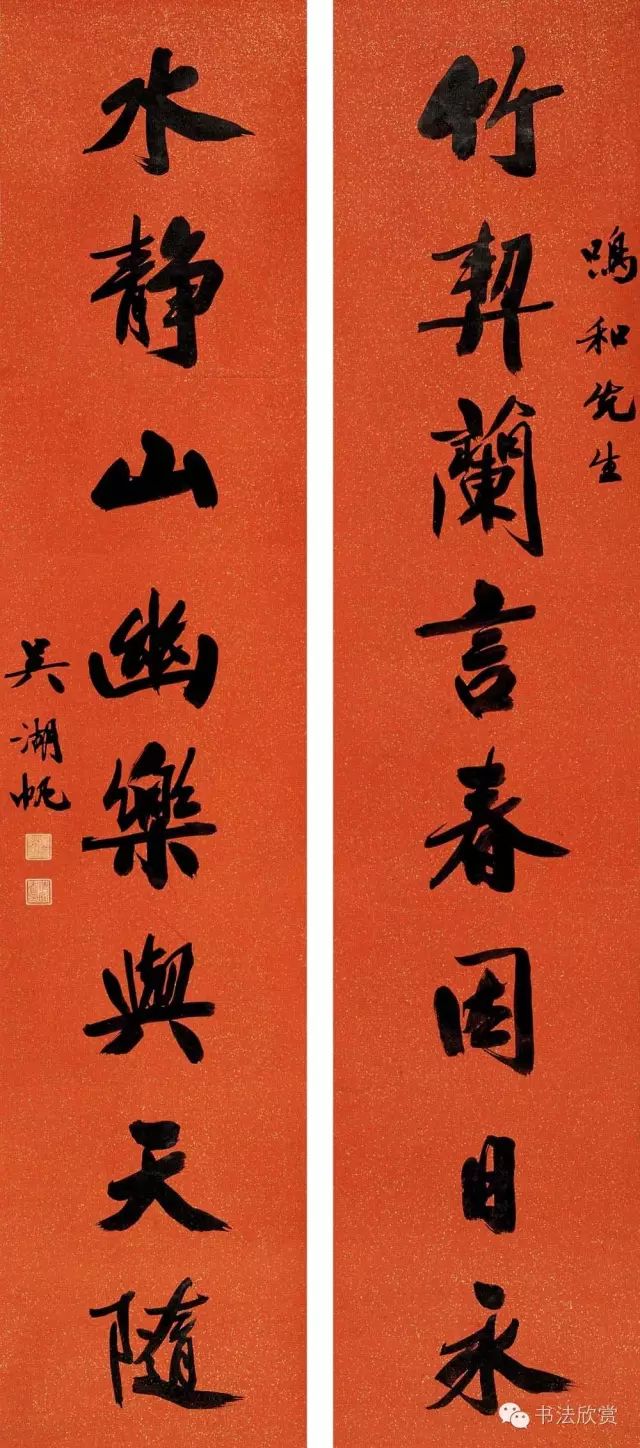 鳴和先生
竹契蘭言春因日永
水静山幽樂與天隨
吴湖帆
书法欣赏